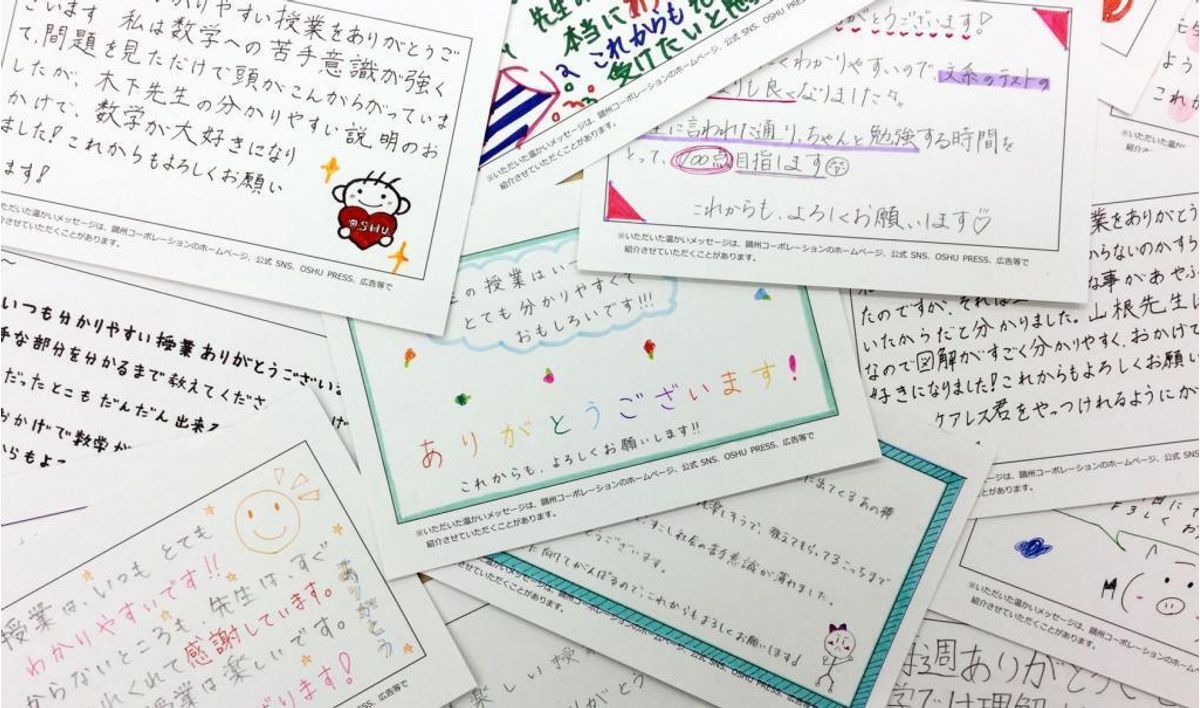 かりやすい授業をありがとうご
ざいます 私は数学への苦手意識が強く
て、問題を見ただけで頭がこんがらがっていま
したが、木下先生の分かりやすい説明のお
かげで、数学が大好きになり
ました!これからもよろしくお願い
ます!
OSHU
※いただいた温かいメッセージは、鷗州コーポレーションのホームページ、公式 SNS、OSHU PRESS、広告等で
介させていただくことがあります。
先生
本当に
これからも
受けたいと
※いただいた温かいメッセージは、
紹介させていただくことがあります。
がとうございます!
くわかりやすいので文系のテストの
よりも良くなりました
に言われた通り、ちゃんと勉強する時間を
とって、100点目指します
これからも、よろしくお願いします♡
※いただいた温かいメッセージは、鷗州コーポレーションのホームページ、公式 SNS、OSHU PRESS、広告等で
紹介させていただくことがあります。
よう
これ
※いただいた温か
紹介させていただ
の授業はいつ
とても分かりやすくて
おもしろいです!!!
ありがとうございます!
これからも、よろしくお願いします!!
※いただいた温かいメッセージは、鷗州コーポレーションのホームページ、公式 SNS、OSHU PRESS、広告等で
紹介させていただくことがあります。
いつも分かりやすい授業ありがとうございま
手な部分を分かるまで教えてくださ
だったとこもだんだん出来る
おかげで数学が
からもよ
業をありがとう
からないのかすら
な事があやふ
たのですが、それは
いたからだと分かりました。山根先生
なので図解がすごく分かりやすく、おかげで
好きになりました!これからもよろしくお願い
ケアレス君をやっつけれるようにが
ージは、鷗州コーポレーションのホームページ、公式
とがあります。
授業は、いつも とても
わかりやすいです!!
からないところも、先生は、すぐ
れくれて感謝しています。
授業は楽しいです。
ざいます!
ありがとう
OSHU PRESS、広告等で
に出てくるあの種
しそうで、教えてもらってるこっちまで
とうございます。
すこし社会の苦手意識が薄れました。
に向けてがんばるので、これからもよろしくお願いします♪
いただいた温かいメッセージは、鷗州コーポレーションのホームページ、公式 SNS、OSHU PRESS、
させていただくことがあります。
※いただいた温かいメッセージは、鷗州コ
紹介させていただくことがあります。
楽しい授
がとう
毎週ありがとう
学では理解